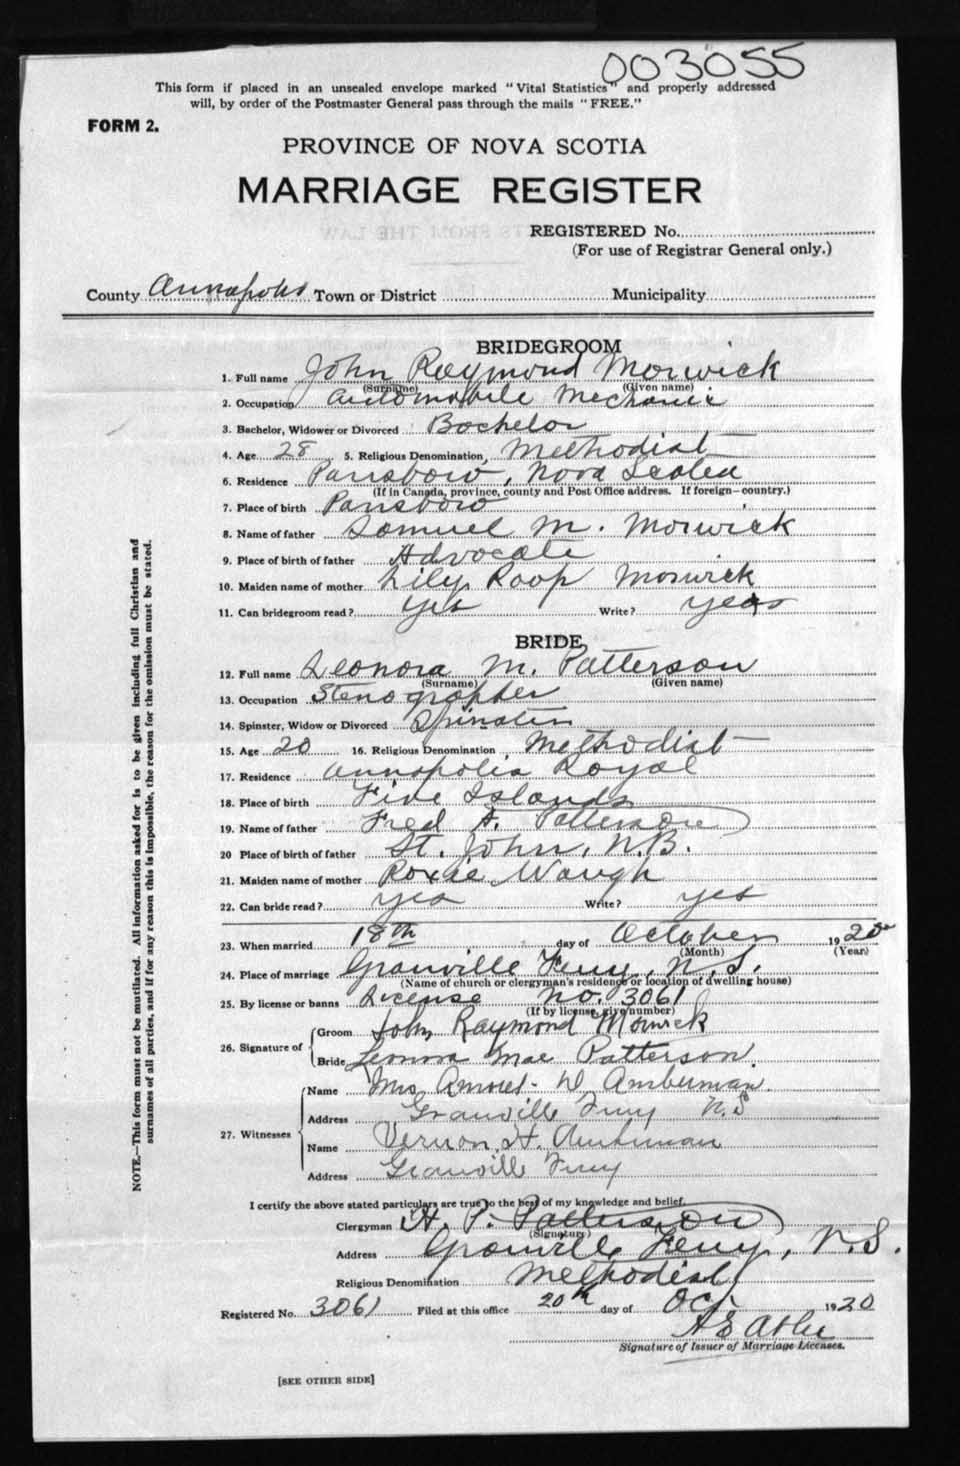 003055
This form if placed in an unsealed envelope marked "Vital Statistics" and properly addressed
will, by order of the Postmaster General pass through the mails "FREE."
FORM 2.
PROVINCE OF NOVA SCOTIA
MARRIAGE REGISTER
REGISTERED No.
(For use of Registrar General only.)
County Annapolis Town or District Municipality
BRIDEGROOM
1. Full name John Raymond Morwick
(Surname) (Given name)
2. Occupation Automobile Mechanic
3. Bachelor, Widower or Divorced Bachelor
4. Age 28 5. Religious Denomination Methodist
6. Residence Parrsboro, Nova Scotia
(If in Canada, province, county and Post Office address. If foreign—country.)
7. Place of birth Parrsboro
8. Name of father Samuel M. Morwick
9. Place of birth of father Advocate
10. Maiden name of mother Lily Roop Morwick
11. Can bridegroom read? yes Write? yes
BRIDE
12. Full name Leonora M. Patterson
(Surname) (Given name)
13. Occupation Stenographer
14. Spinster, Widow or Divorced Spinster
15. Age 20 16. Religious Denomination Methodist
17. Residence Annapolis Royal
18. Place of birth Five Islands
19. Name of father Fred A. Patterson
20 Place of birth of father St. John, N.B.
21. Maiden name of mother Roxie Waugh
22. Can bride read? yes Write? yes
23. When married 18th day of October 1920
(Month) (Year)
24. Place of marriage Granville Ferry, N.S.
(Name of church or clergyman's residence or location of dwelling house)
25. By license or banns License No. 3061
(If by license, give number)
26. Signature of Groom John Raymond Morwick
Bride Leonora Mae Patterson
27. Witnesses Name Mrs D Amberman
Address Granville Ferry N.S
Name Vernon H. Amberman
Address Granville Ferry
I certify the above stated particulars are true to the best of my knowledge and belief.
Clergyman H. P. Patterson
(Signature)
Address Granville Ferry, N.S.
Religious Denomination Methodist
Registered No. 3061 Filed at this office 20th day of Oct 1920
A E
Signature of Issuer of Marriage Licenses.
[SEE OTHER SIDE]
NOTE.—This form must not be mutilated. All information asked for is to be given including full Christian and
surnames of all parties, and if for any reason this is impossible, the reason for the omission must be stated.